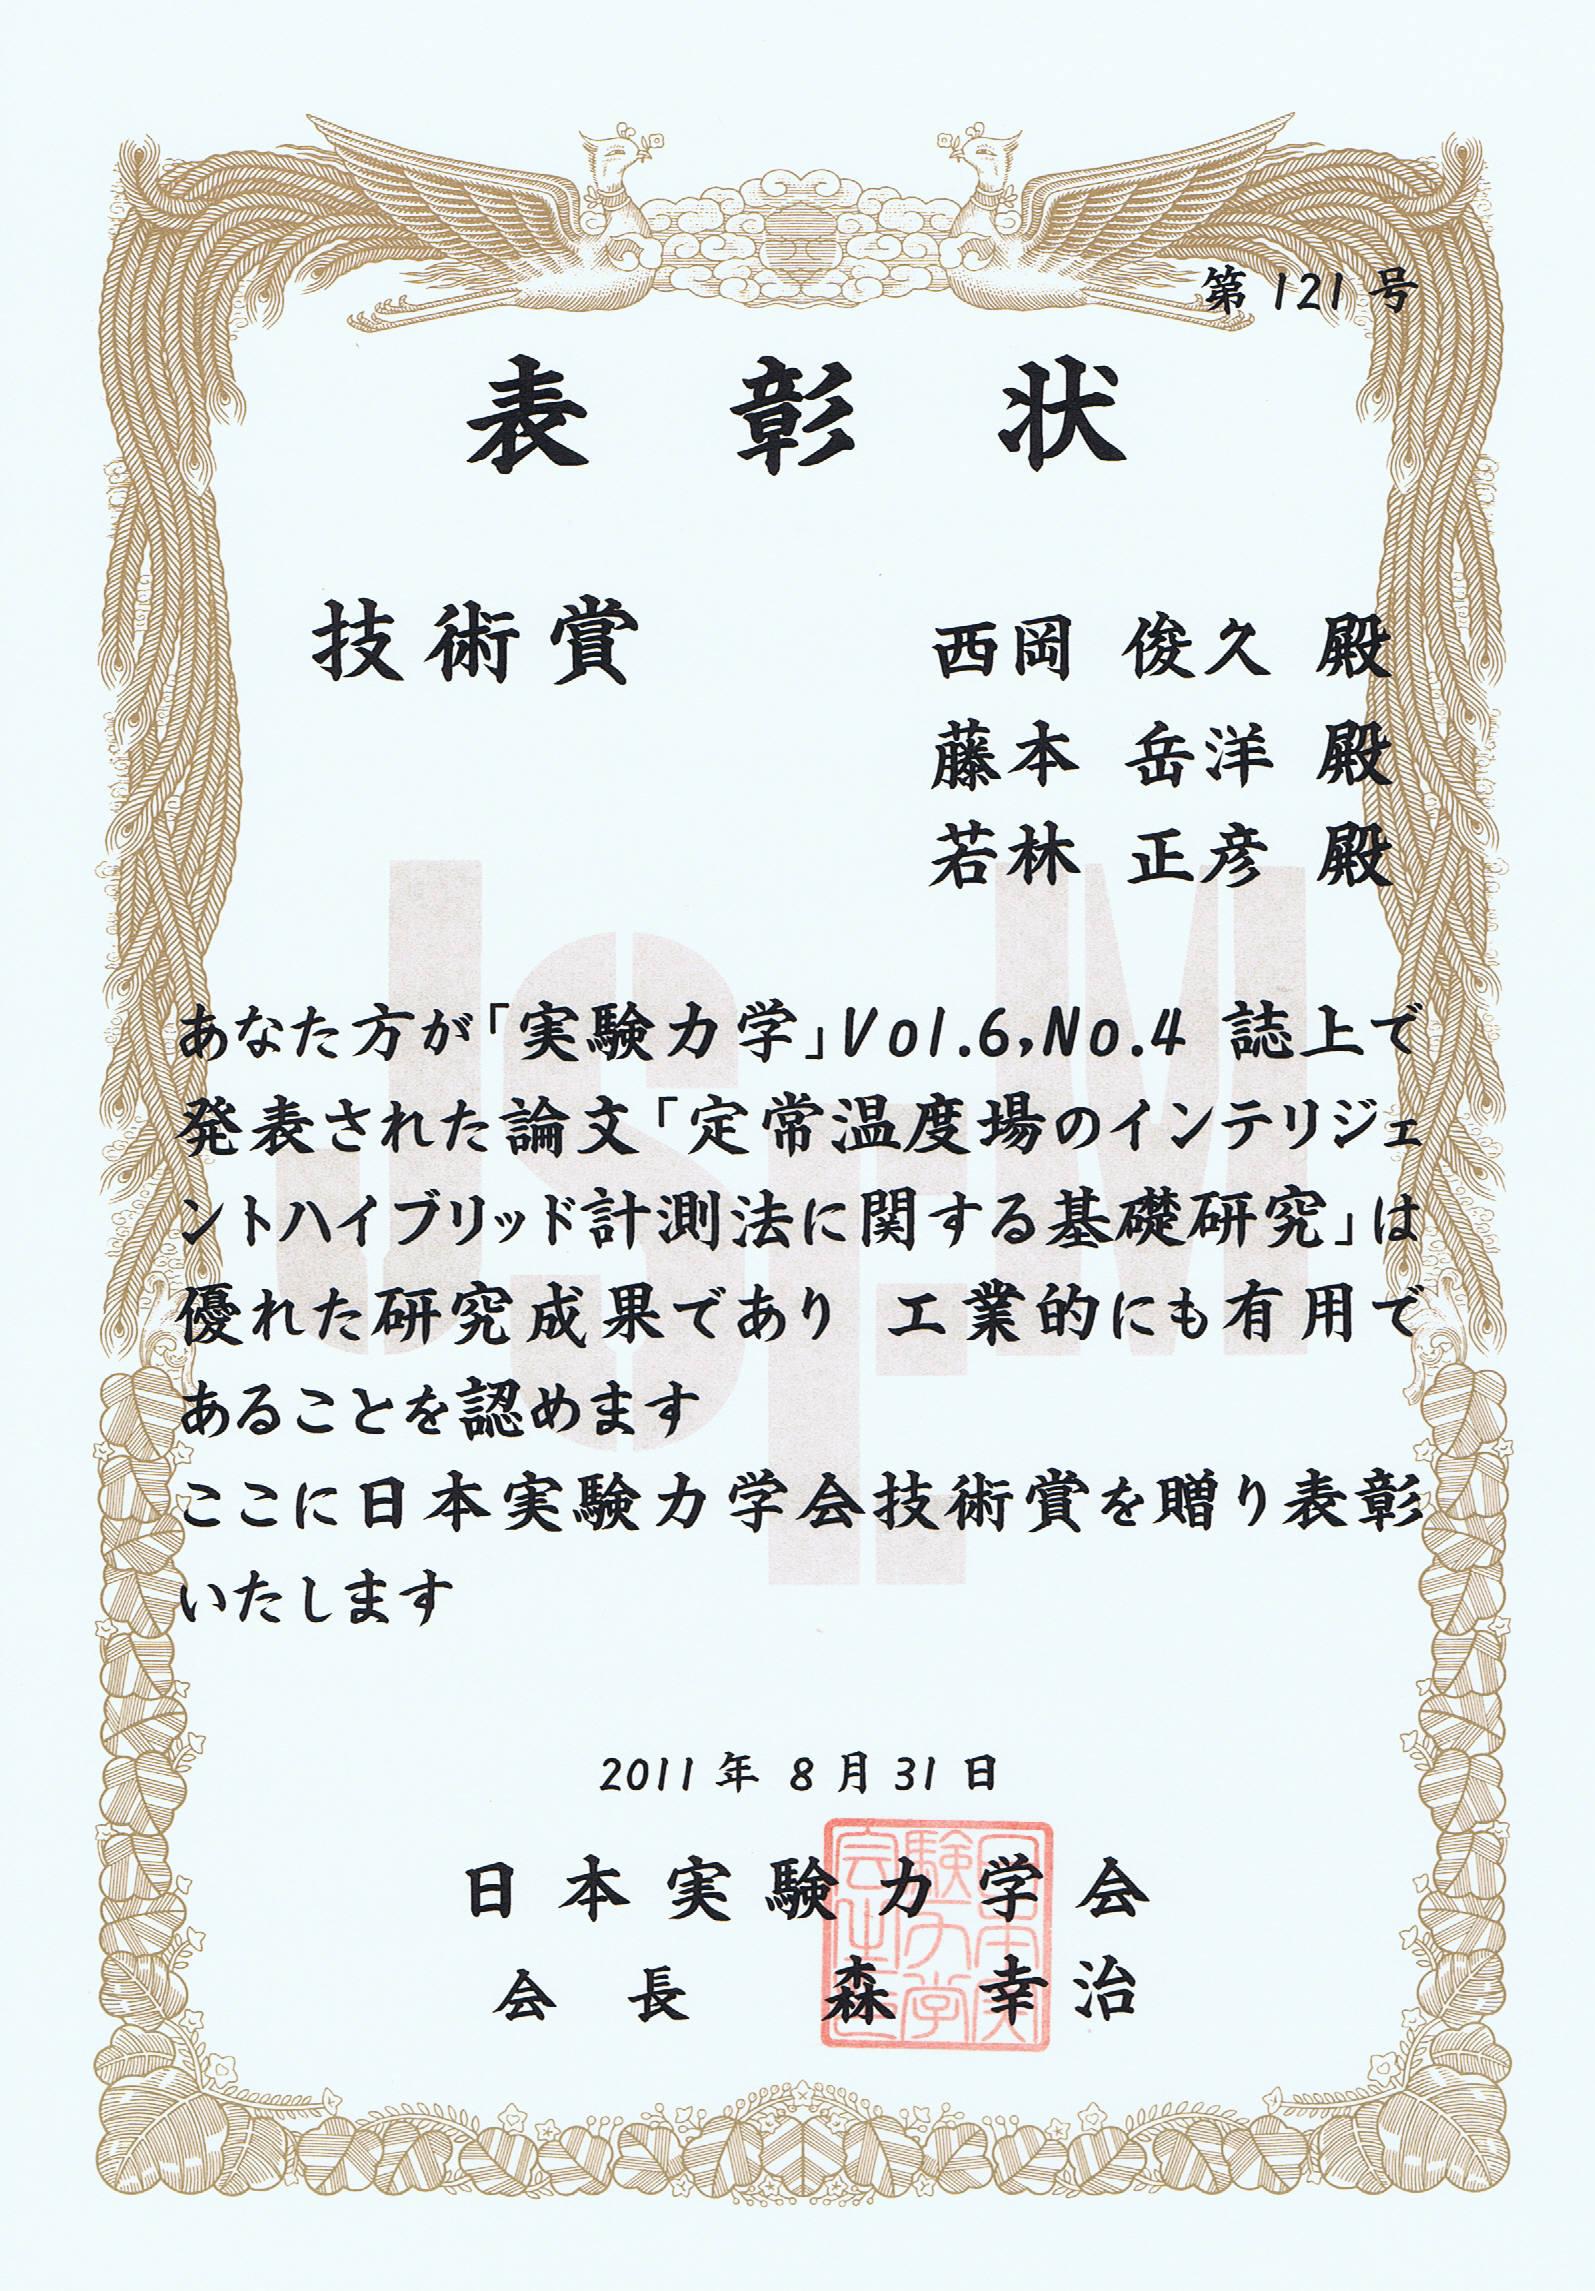 第 121 号
表 彰 状
技術賞
西岡 俊久 殿
藤本 岳洋 殿
若林 正彦 殿
あなた方が「実験力学」Vol.6,No.4 誌上で
発表された論文「定常温度場のインテリジェ
ントハイブリッド計測法に関する基礎研究」は
優れた研究成果であり 工業的にも有用で
あることを認めます
ここに日本実験力学会技術賞を贈り表彰
いたします
JSEM
2011 年 8 月 31 日
日本実験力学会
会 長 森 幸治